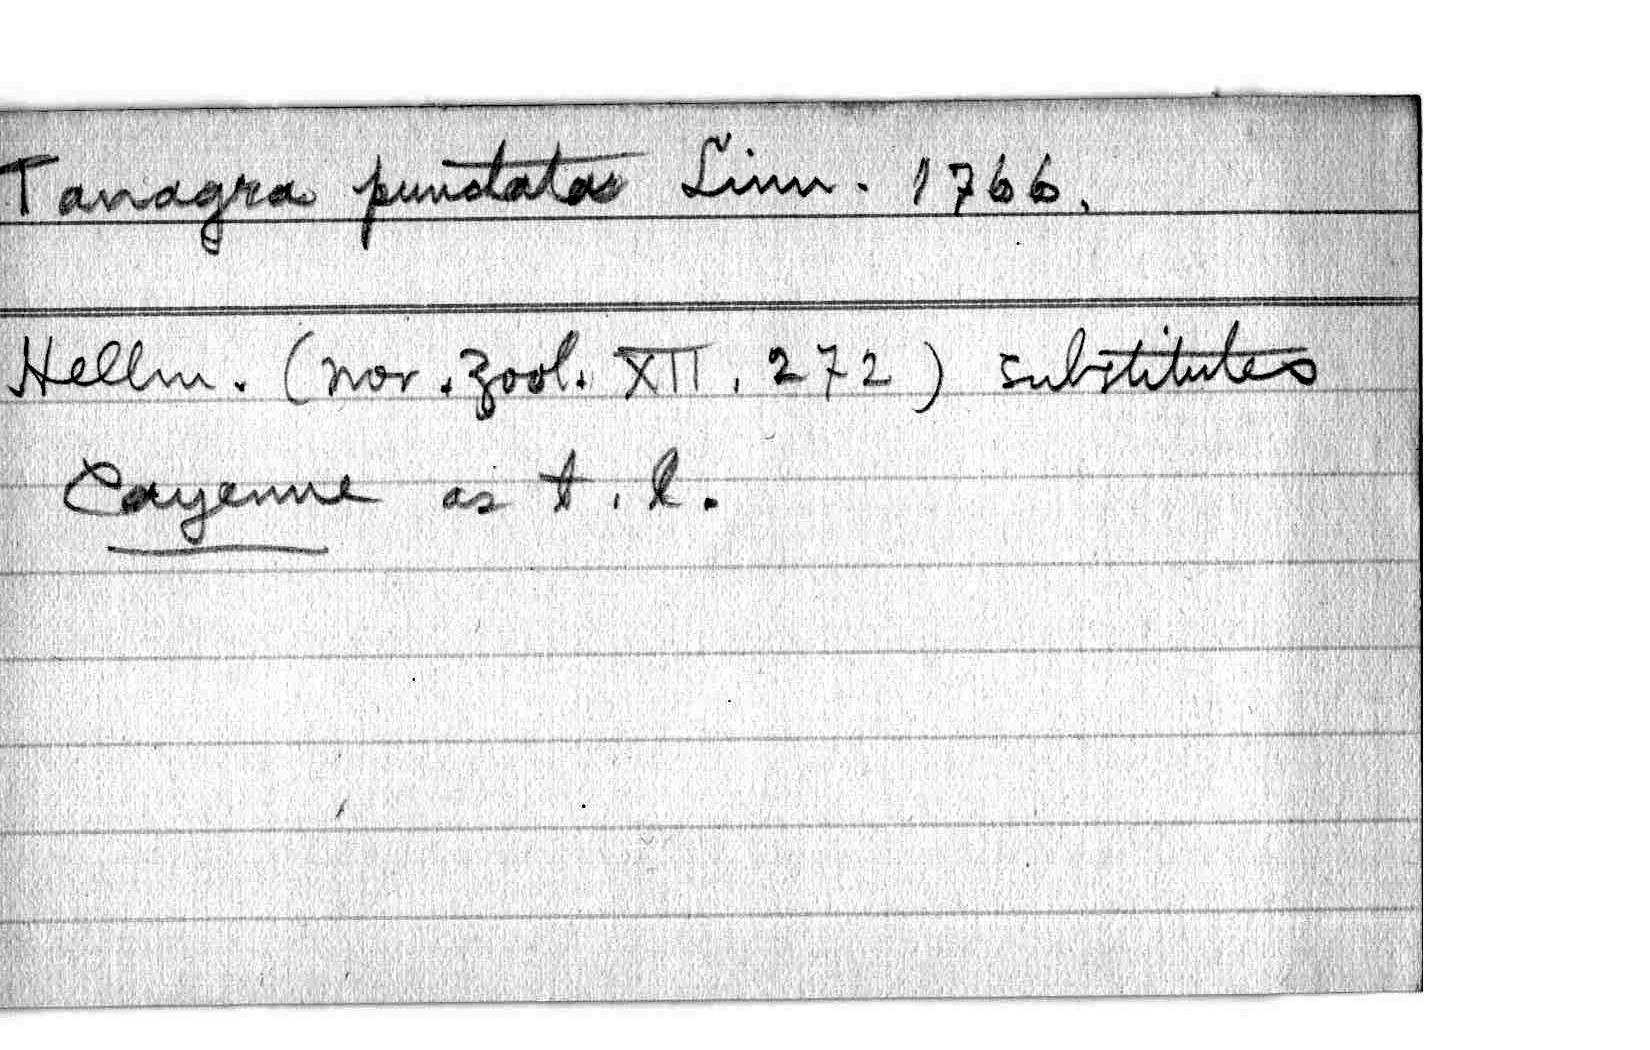 Tanagra punctata Linn. 1766.
Hellm. (nov. zool. XII. 272) substitutes
Cayenne as t. l.